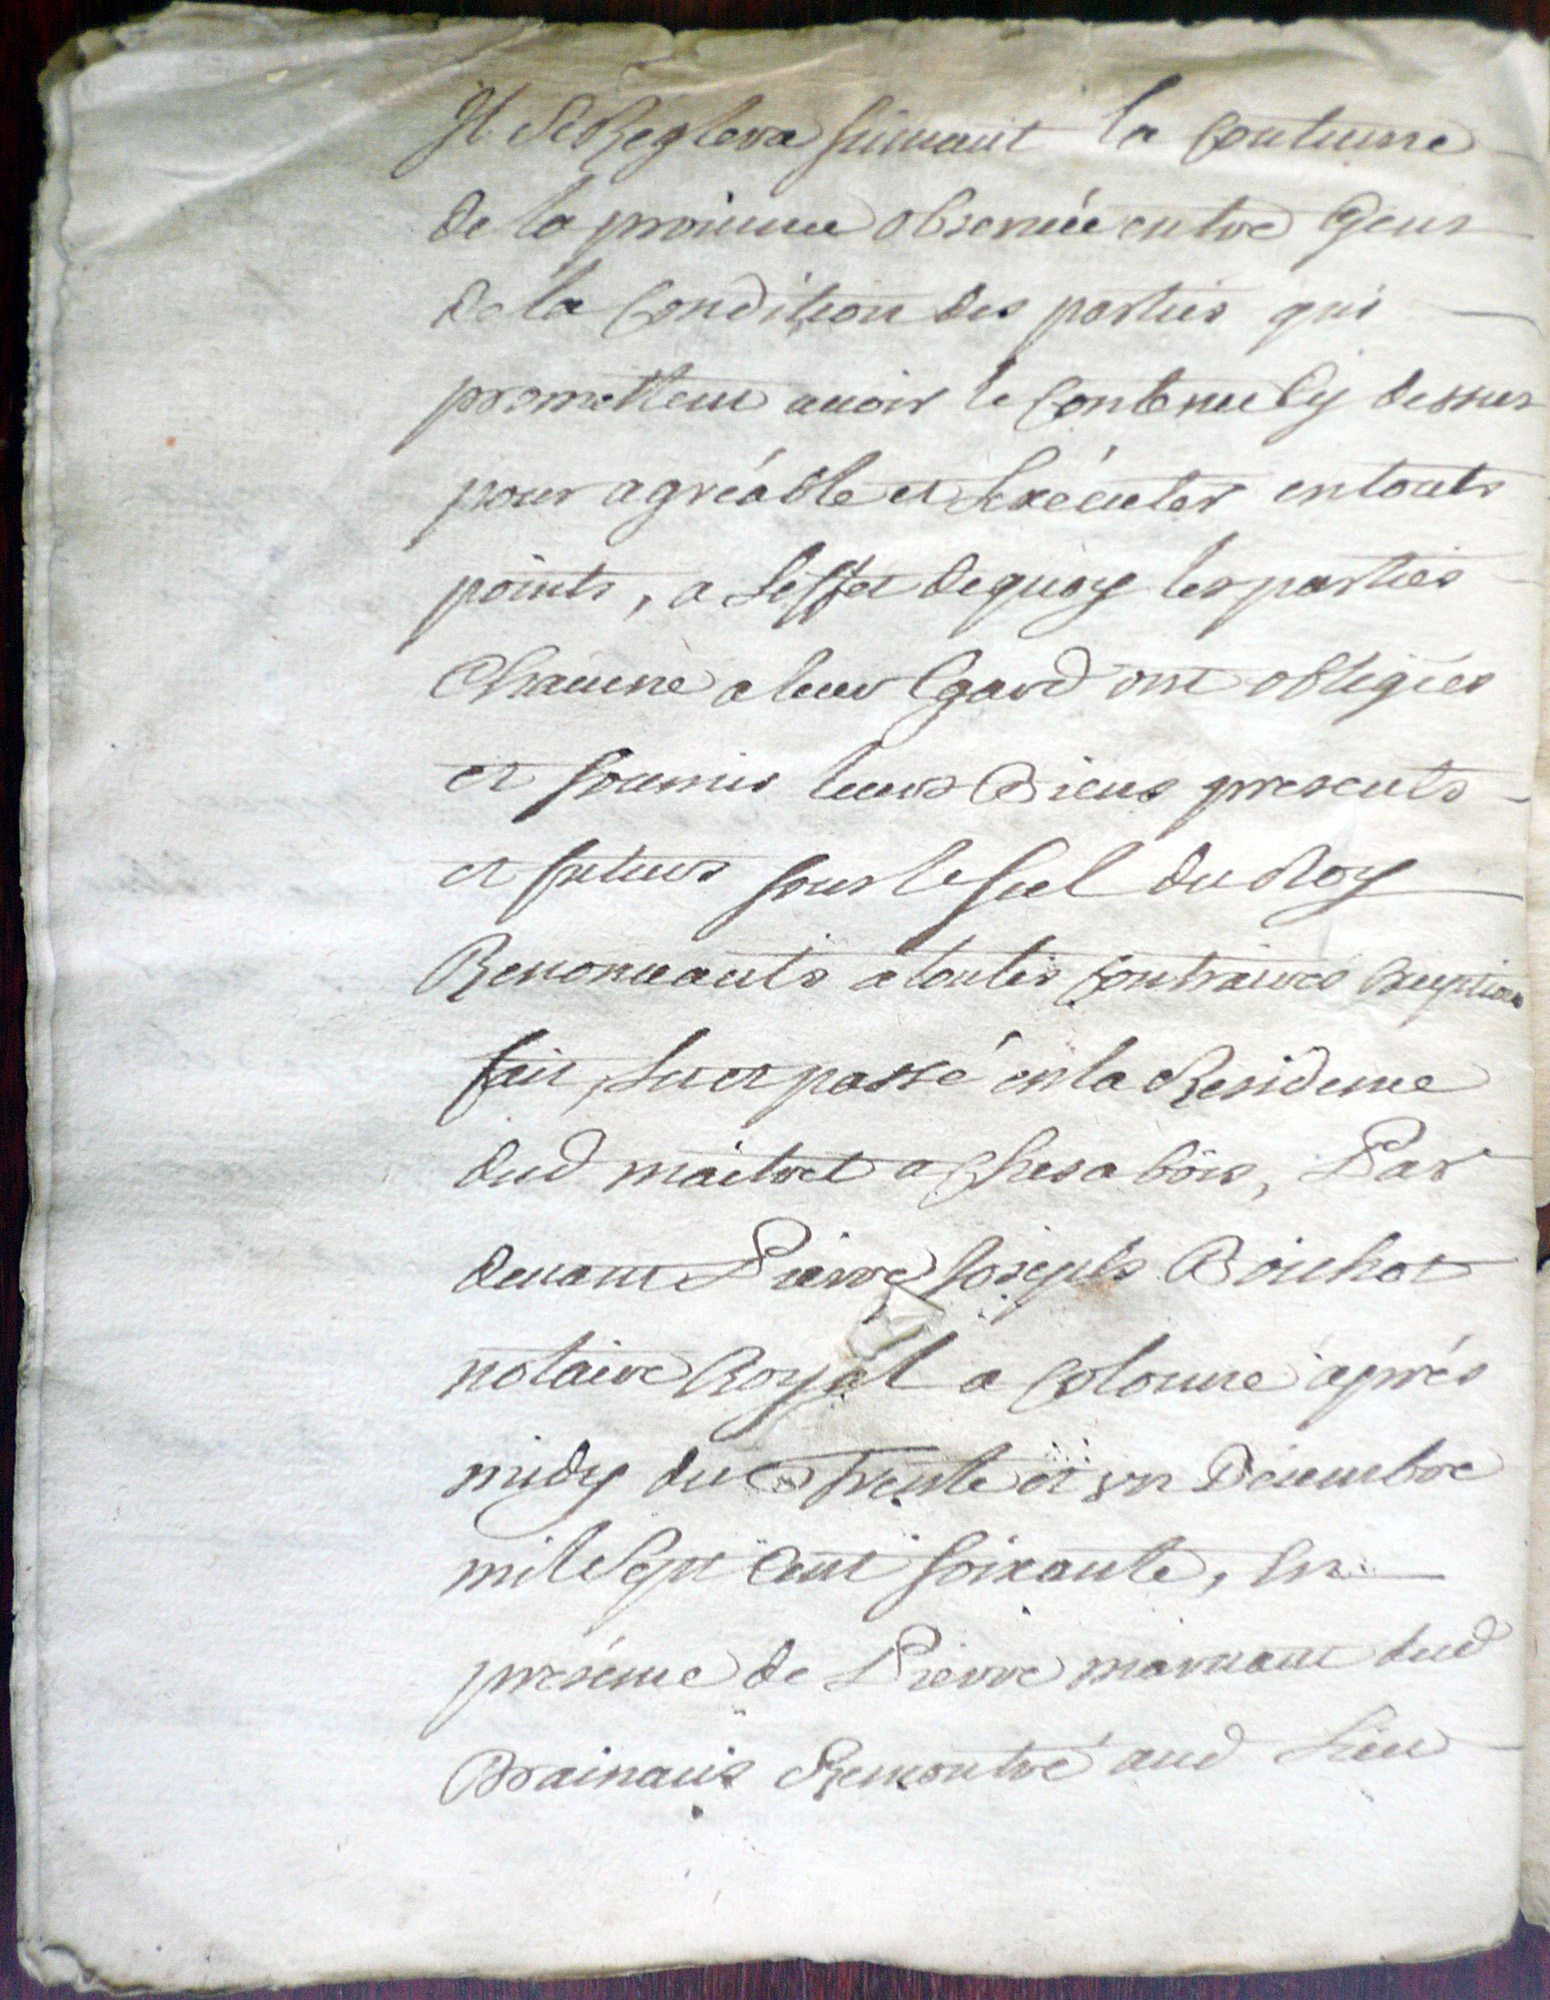 Il Se Reglera suivant la Coutume
de la province observée entre Gens
de la Condition des parties qui
promettent avoir le Contenu Cy dessus
pour agréable et L'exécuter en touts
points, a L'effet de quoy les parties
Chacune a leur Egard ont obligées
et soumis leurs Biens presents
et futurs sous le scel du Roy
Renonceants a toutes Contraires Exceptions
fait, Lu et passé en la Residence
dud maitret a Chesabois, Par
devant Pierre Joseph Boichot
notaire Royal a Colonne après
midy du Trente et un Décembre
mil Sept Cent soixante, En
présence de Pierre marmant dud
Brainans Remontré aud Lieu